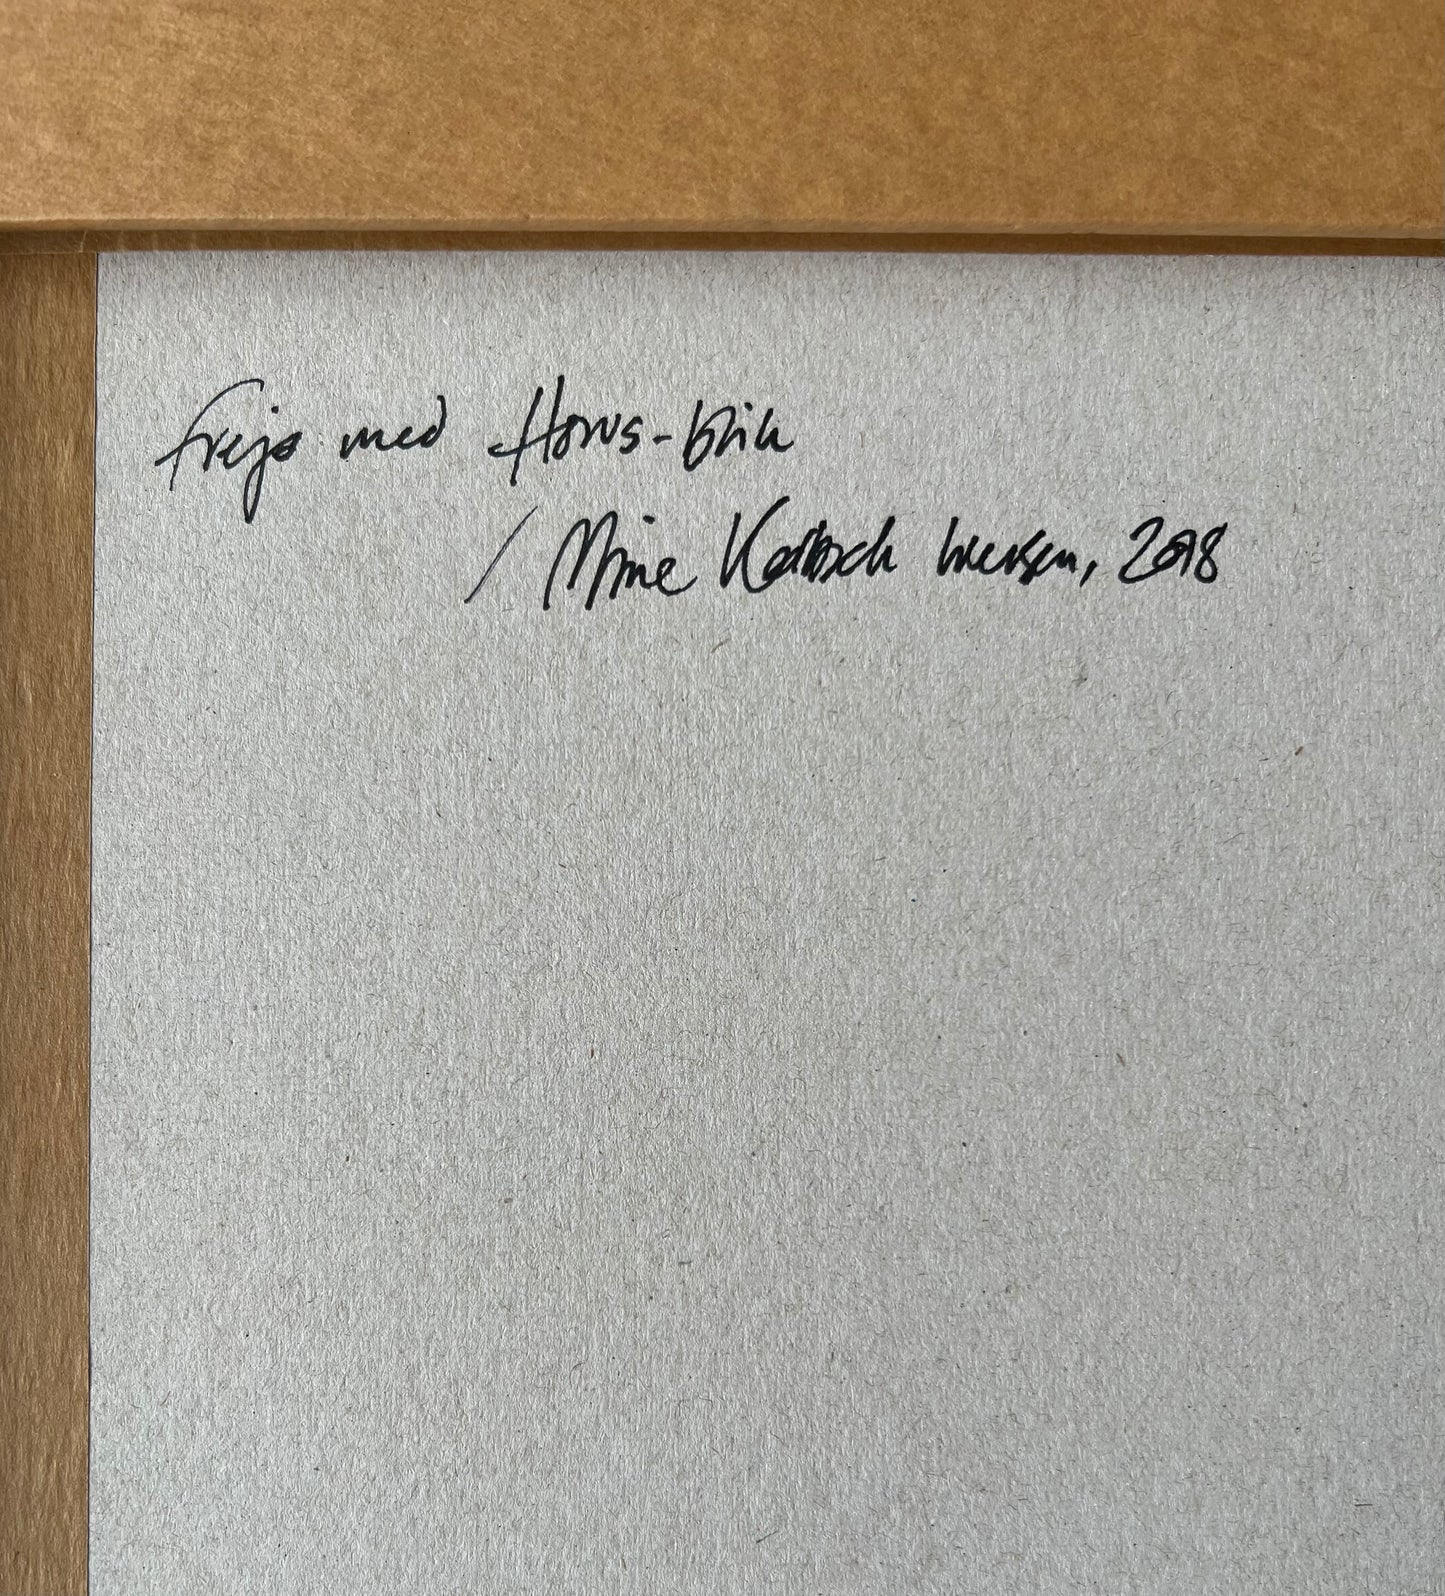 Freja med Horus-blik
/ Mine Kaalbach Iversen, 2018